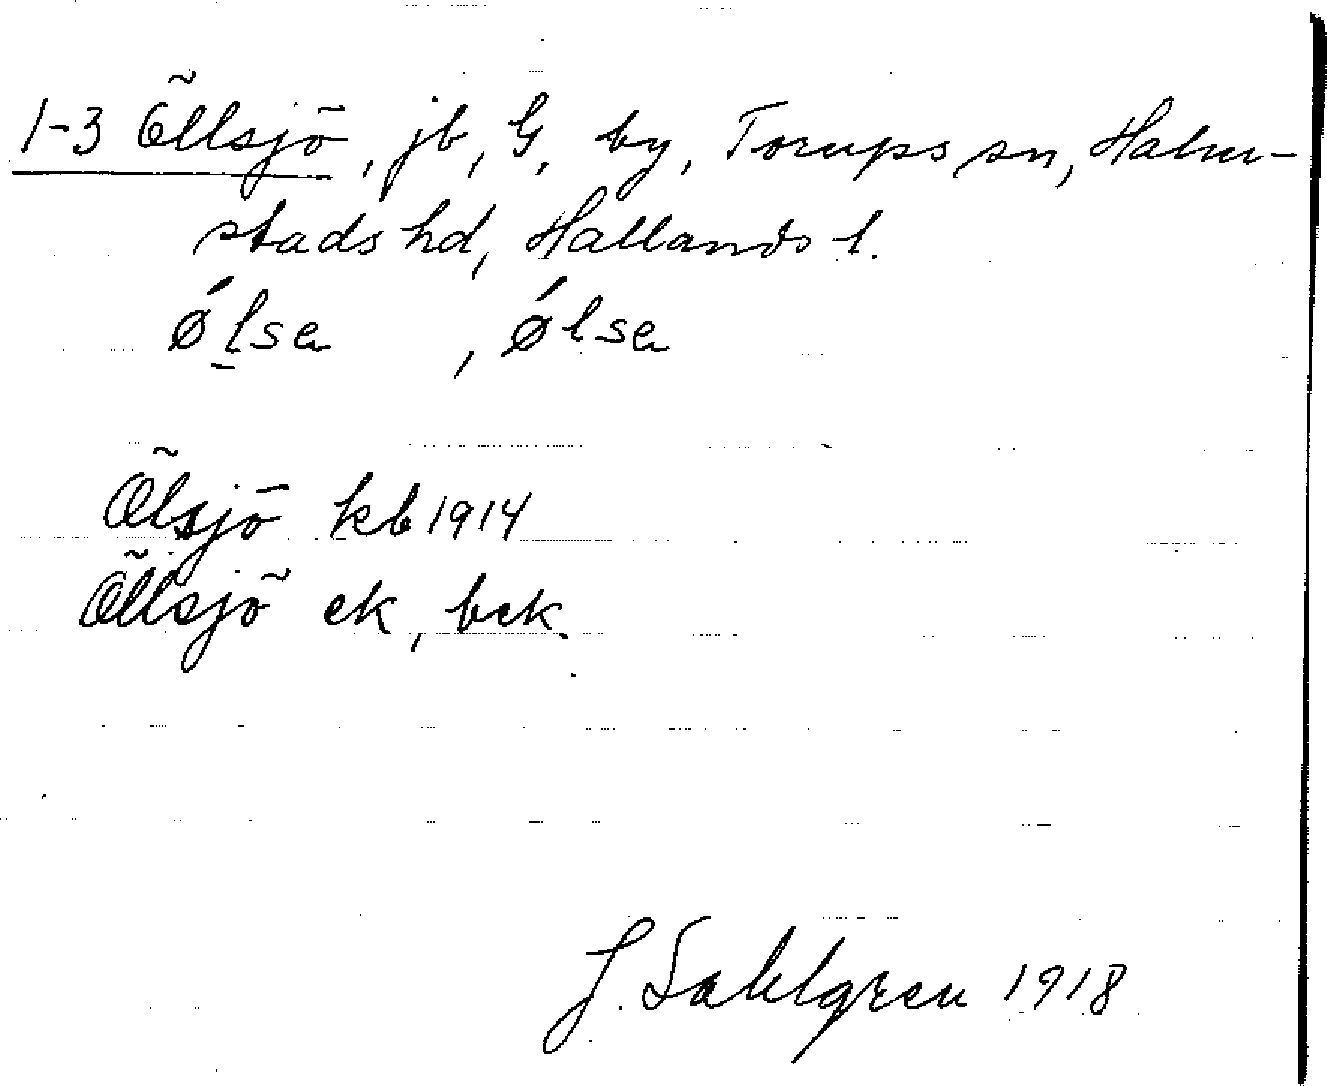 1-3 Öllsjö, jb, G, by, Torups sn, Halm-
stads hd, Hallands l.
ǿlsa, ǿlsa
Ölsjö kb 1914
Öllsjö ek, bek.
J. Sahlgren 1918